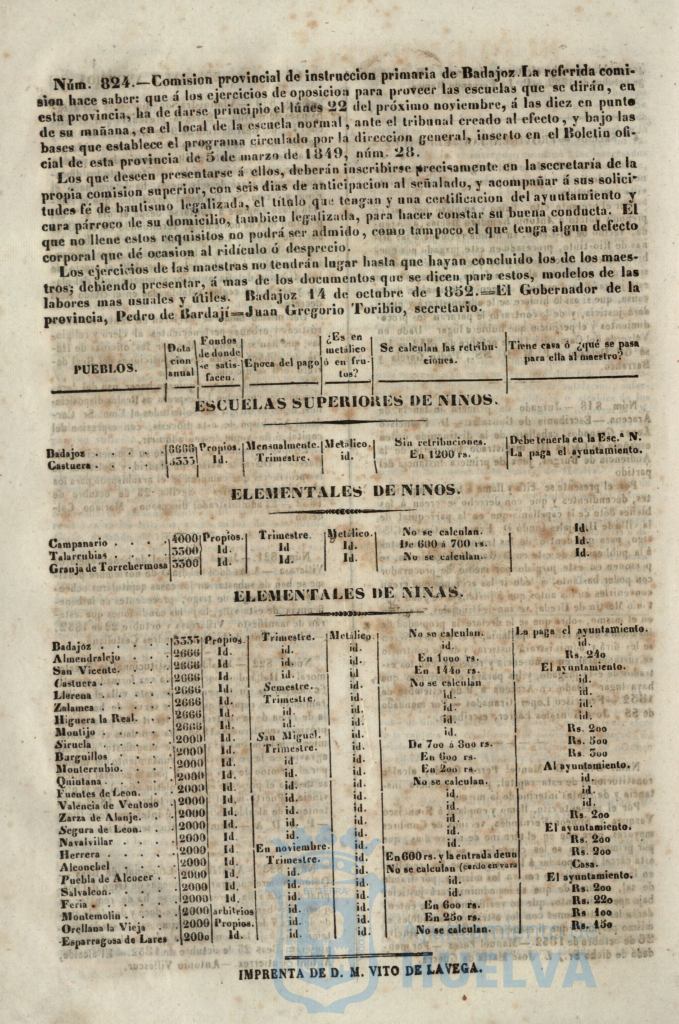 Núm. 824.—Comision provincial de instruccion primaria de Badajoz. La referida comi-
sion hace saber: que á los ejercicios de oposicion para proveer las escuelas que se dirán, en
esta provincia, ha de darse principio el lúnes 22 del próximo noviembre, á las diez en punto
de su mañana, en el local de la escuela normal, ante el tribunal creado al efecto, y bajo las
bases que establece el programa circulado por la direccion general, inserto en el Boletin ofi-
cial de esta provincia de 5 de marzo de 1849, núm. 28.
Los que deseen presentarse á ellos, deberán inscribirse precisamente en la secretaría de la
propia comision superior, con seis dias de anticipacion al señalado, y acompañar á sus solici-
tudes fé de bautismo legalizada, el título que tengan y una certificacion del ayuntamiento y
cura párroco de su domicilio, tambien legalizada, para hacer constar su buena conducta. El
que no llene estos requisitos no podrá ser admido, como tampoco el que tenga algun defecto
corporal que dé ocasion al ridículo ó desprecio.
Los ejercicios de las maestras no tendrán lugar hasta que hayan concluido los de los maes-
tros; debiendo presentar, á mas de los documentos que se dicen para estos, modelos de las
labores mas usuales y útiles. Badajoz 14 de octubre de 1852.=El Gobernador de la
provincia, Pedro de Bardají=Juan Gregorio Toribio, secretario.
PUEBLOS. Dotacion anual Fondos de donde se satisfacen. Epoca del pago ¿Es en metálico ó en frutos? Se calculan las retribuciones. Tiene casa ó ¿qué se pasa para ella al maestro?
ESCUELAS SUPERIORES DE NIÑOS.
Badajoz . . . . 6666 Propios. Mensualmente. Metálico. Sin retribuciones. Debe tenerla en la Esc.ª N.
Castuera . . . . 5333 Id. Trimestre. id. En 1200 rs. La paga el ayuntamiento.
ELEMENTALES DE NIÑOS.
Campanario . . . . 4000 Propios. Trimestre. Metálico. No se calculan. Id.
Talarrubias . . . . 3300 Id. Id Id. De 600 á 700 rs. Id.
Granja de Torrehermosa 3300 Id. Id. Id. No se calculan. Id.
ELEMENTALES DE NIÑAS.
Badajoz . . . . 3333 Propios. Trimestre. Metálico. No se calculan. La paga el ayuntamiento.
Almendralejo . . . 2666 Id. id. id. id. id.
San Vicente. . . . 2666 Id. id. id. En 1000 rs. Rs. 240
Castuera . . . . 2666 Id. id. id. En 1440 rs. El ayuntamiento.
Llerena . . . . 2666 Id. Semestre. id. No se calculan id.
Zalamea . . . . 2666 Id. Trimestre. id. id. id.
Higuera la Real. . . 2666 Id. id. id. id. id.
Montijo . . . . 2666 Id. id. id. id. id.
Siruela . . . . 2000 Id. San Miguel. id. id. Rs. 200
Barguillos . . . . 2000 Id. Trimestre. id. De 700 á 800 rs. Rs. 500
Monterrubio. . . . 2000 Id. id id. En 600 rs. Rs. 300
Quintana . . . . 2000 Id. id. id. En 200 rs. Al ayuntamiento.
Fuentes de Leon. . . 2000 Id. id. id. No se calculan. id.
Valencia de Ventoso 2000 Id. id. id. id. id.
Zarza de Alanje. . . 2000 Id. id. id. id. id.
Segura de Leon. . . 2000 Id. id. id. id. Rs. 200
Navalvillar . . . 2000 Id. id. id. id. El ayuntamiento.
Herrera . . . . 2000 Id. En noviembre. id. id. id.
Alconchel . . . . 2000 Id. Trimestre. id. En 600 rs. y la entrada de un Rs. 200
Puebla de Alcocer . . 2000 Id. id. id. No se calculan (cerdo en vara Casa.
Salvalcon. . . . 2000 Id. id. id. id. El ayuntamiento.
Feria . . . . 2000 Id. id. id. id. Rs. 200
Montemolin . . . 2000 arbitrios id. id. En 600 rs. Rs. 220
Orellana la Vieja . . 2000 Propios. id. id. En 250 rs. Rs 100
Esparragosa de Lares 2000 Id. id. id. No se calculan. Rs. 150
IMPRENTA DE D. M. VITO DE LA VEGA.
HUELVA